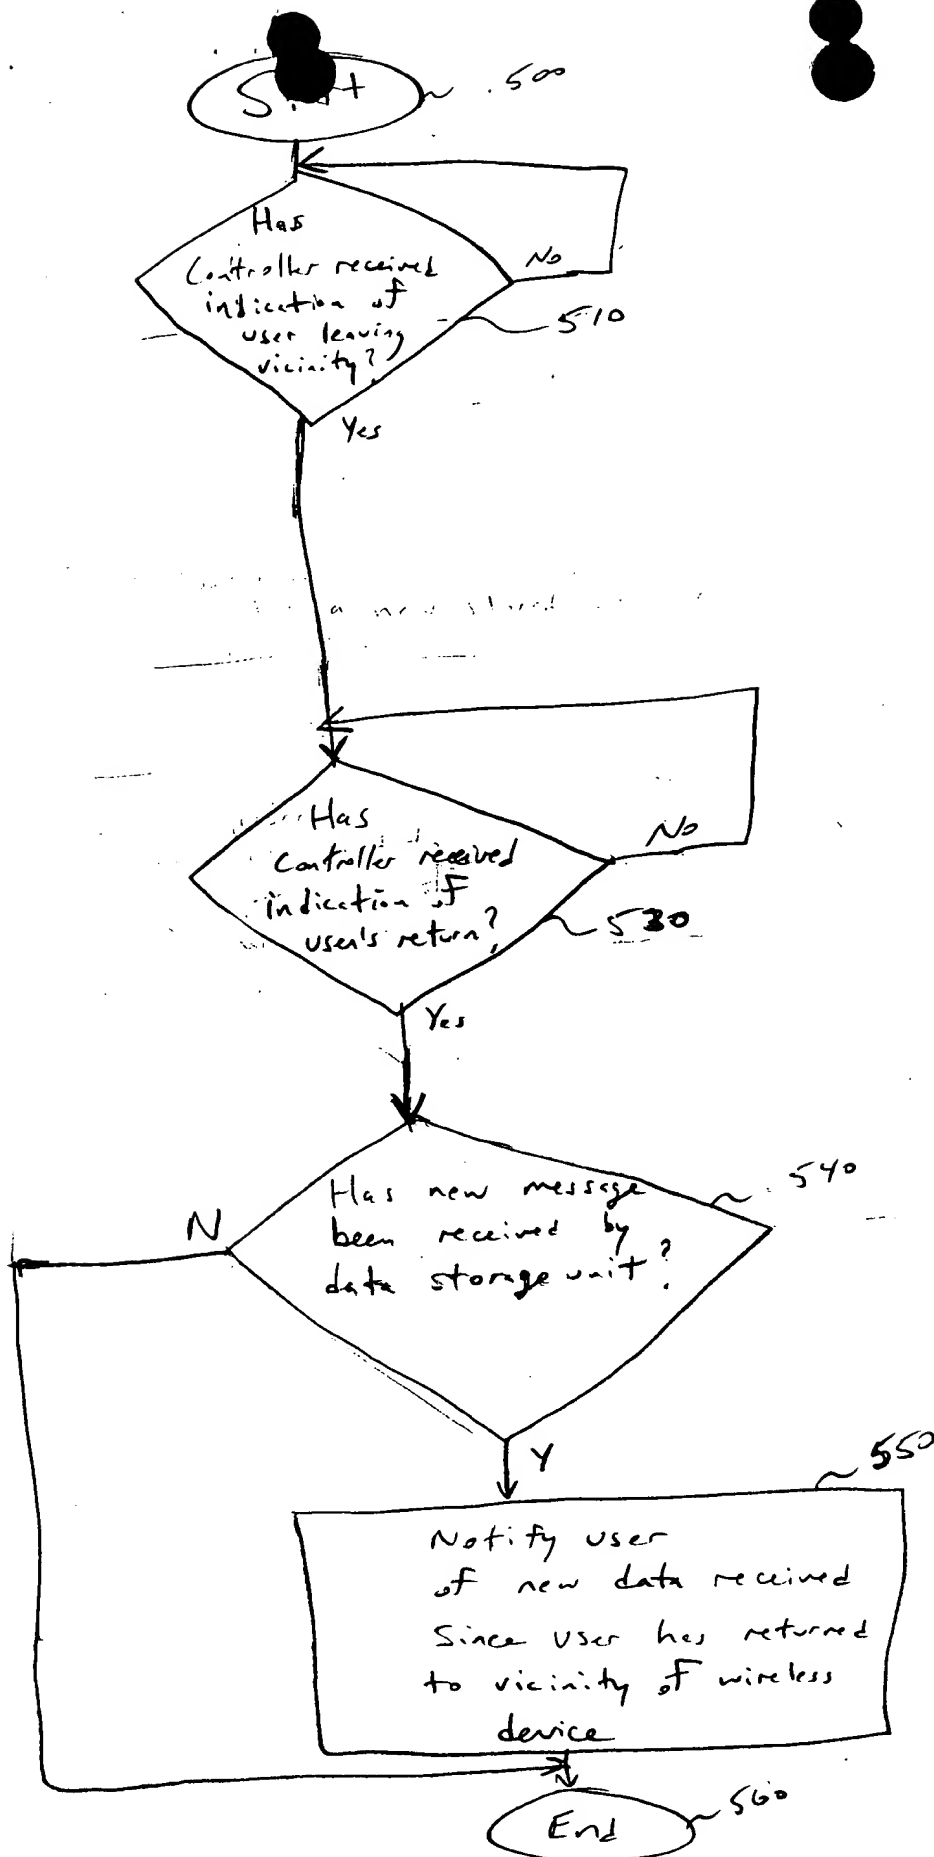 500
Has
Controller received
indication of
user leaving
vicinity?
No
510
Yes
a new
Has
Controller received
indication of
user's return?
No
530
Yes
540
Has new message
been received by
data storage unit?
N
Y
550
Notify user
of new data received
Since user has returned
to vicinity of wireless
device
560
End